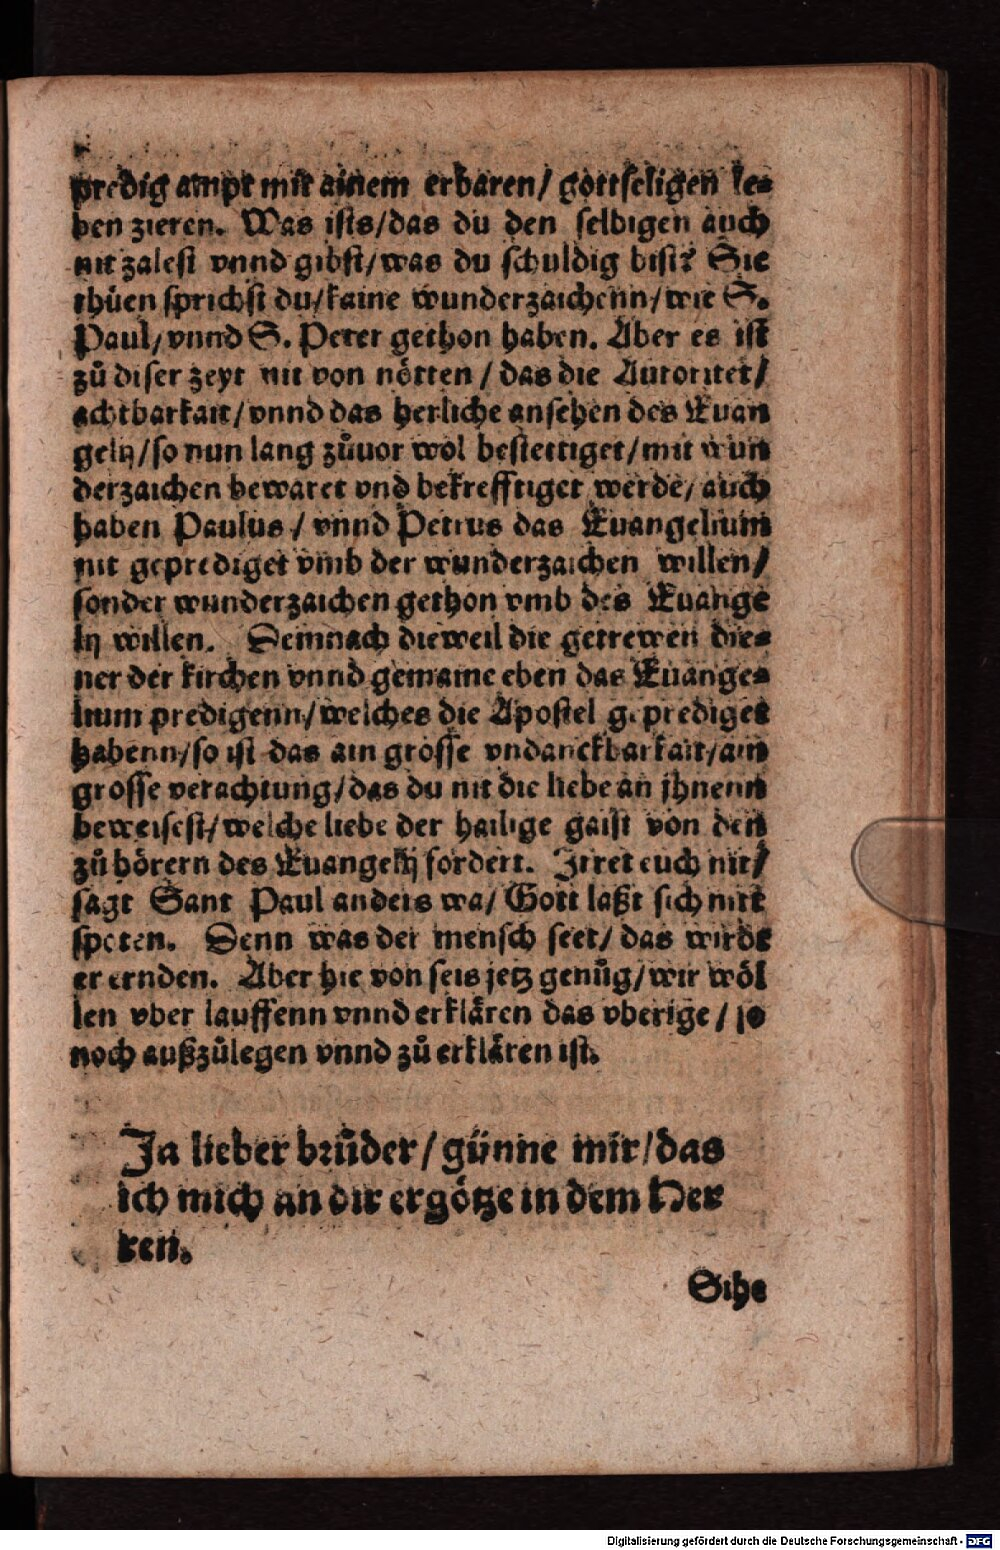 predig ampt mit ainem erbaren/ gottseligen le⸗
ben zieren. Was ists/das du den selbigen auch
nit zalest vnnd gibst/was du schuldig bist? Sie
thüen sprichst du/kaine wunderzaichenn/wie S.
Paul/vnnd S. Peter gethon haben. Aber es ist
zů diser zeyt nit von nötten / das die Autoritet/
achtbarkait/vnnd das herliche ansehen des Euan
gelij/so nun lang zůuor wol bestettiget/mit wun
derzaichen bewaret vnd bekrefftiget werde/auch
haben Paulus / vnnd Petrus das Euangelium
nit geprediget vmb der wunderzaichen willen/
sonder wunderzaichen gethon vmb des Euange
lij willen. Demnach dieweil die getrewen die⸗
ner der kirchen vnnd gemaine eben das Euange⸗
lium predigenn/welches die Apostel geprediget
habenn/so ist das ain grosse vndanckbarkait/ain
grosse verachtung/das du nit die liebe an jhnenn
beweisest/welche liebe der hailige gaist von den
zů hörern des Euangelij fordert. Irret euch nit/
sagt Sant Paul anders wa/ Gott laßt sich nitt
spoten. Denn was der mensch seet/ das wirdt
er ernden. Aber hie von seis jetz genůg/wir wöl
len vber lauffenn vnnd erklären das vberige / so
noch außzůlegen vnnd zů erklären ist.
Ja lieber brůder/günne mir/das
ich mich an dir ergötze in dem Her
ren.
Sihe
Digitalisierung gefördert durch die Deutsche Forschungsgemeinschaft - DFG